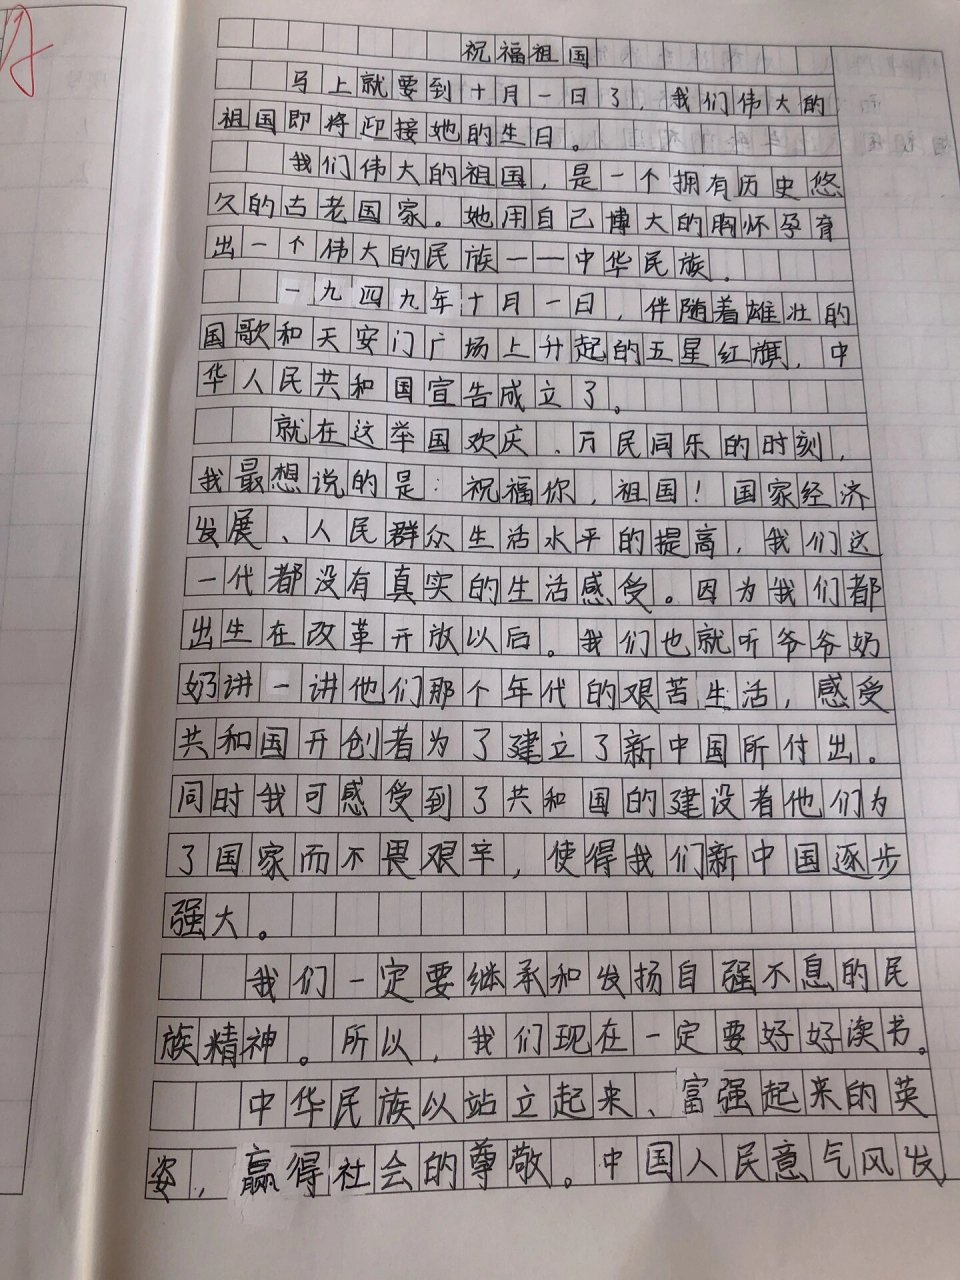 祝福祖国
马上就要到十月一日了，我们伟大的
祖国即将迎接她的生日。
我们伟大的祖国，是一个拥有历史悠
久的古老国家。她用自己博大的胸怀孕育
出一个伟大的民族——中华民族。
一九四九年十月一日，伴随着雄壮的
国歌和天安门广场上升起的五星红旗，中
华人民共和国宣告成立了。
就在这举国欢庆、万民同乐的时刻，
我最想说的是：祝福你，祖国！国家经济
发展、人民群众生活水平的提高，我们这
一代都没有真实的生活感受。因为我们都
出生在改革开放以后。我们也就听爷爷奶
奶讲一讲他们那个年代的艰苦生活，感受
共和国开创者为了建立了新中国所付出。
同时我可感受到了共和国的建设者他们为
了国家而不畏艰辛，使得我们新中国逐步
强大。
我们一定要继承和发扬自强不息的民
族精神。所以，我们现在一定要好好读书。
中华民族以站立起来、富强起来的英
姿，赢得社会的尊敬。中国人民意气风发